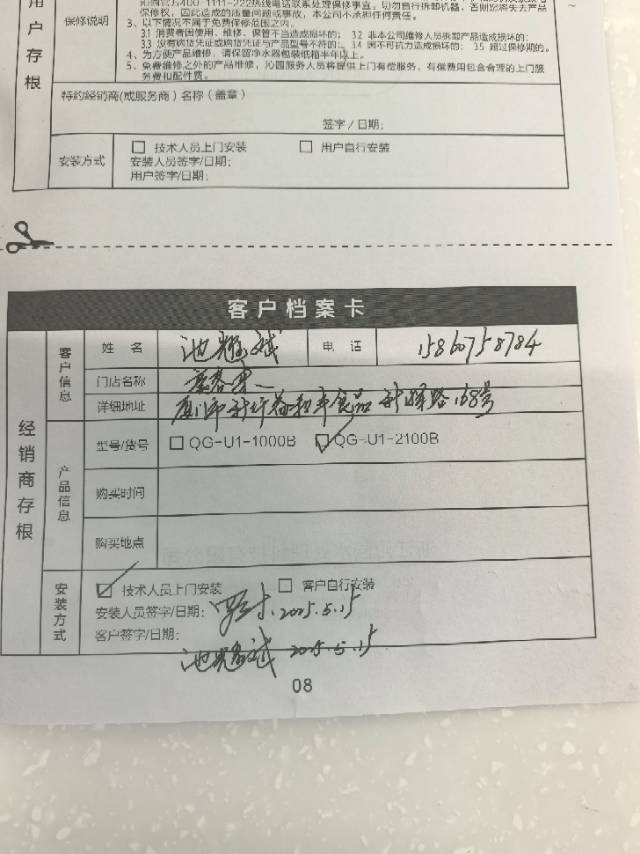 户存根
保修说明
保修权，因此造成的质量问题或事故，本公司不承担任何责任。
3、以下情况不属于免费保修范围之内。
3.1 消费者因使用、维修、保管不当造成损坏的； 3.2 非本公司维修人员拆卸产品造成损坏的；
3.3 没有购货凭证或购货凭证与产品型号不符的； 3.4 因不可抗力造成损坏的； 3.5 超过保修期的。
4、为方便产品维修，请保留净水器包装纸箱半年以上。
5、免费维修之外的产品维修，沁园服务人员将提供上门有偿服务，有偿费用包含合理的上门服
务费和配件费。
特约经销商(或服务商)名称（盖章）
签字／日期：
安装方式
技术人员上门安装 用户自行安装
安装人员签字/日期：
用户签字/日期：
客户档案卡
经销商存根
客户信息
姓 名 电 话 15860758784
门店名称
详细地址 168号
产品信息
型号/货号 QG-U1-1000B QG-U1-2100B
购买时间
购买地点
安装方式
技术人员上门安装 客户自行安装
安装人员签字/日期： 2025.5.15
客户签字/日期：
2025.5.15
08